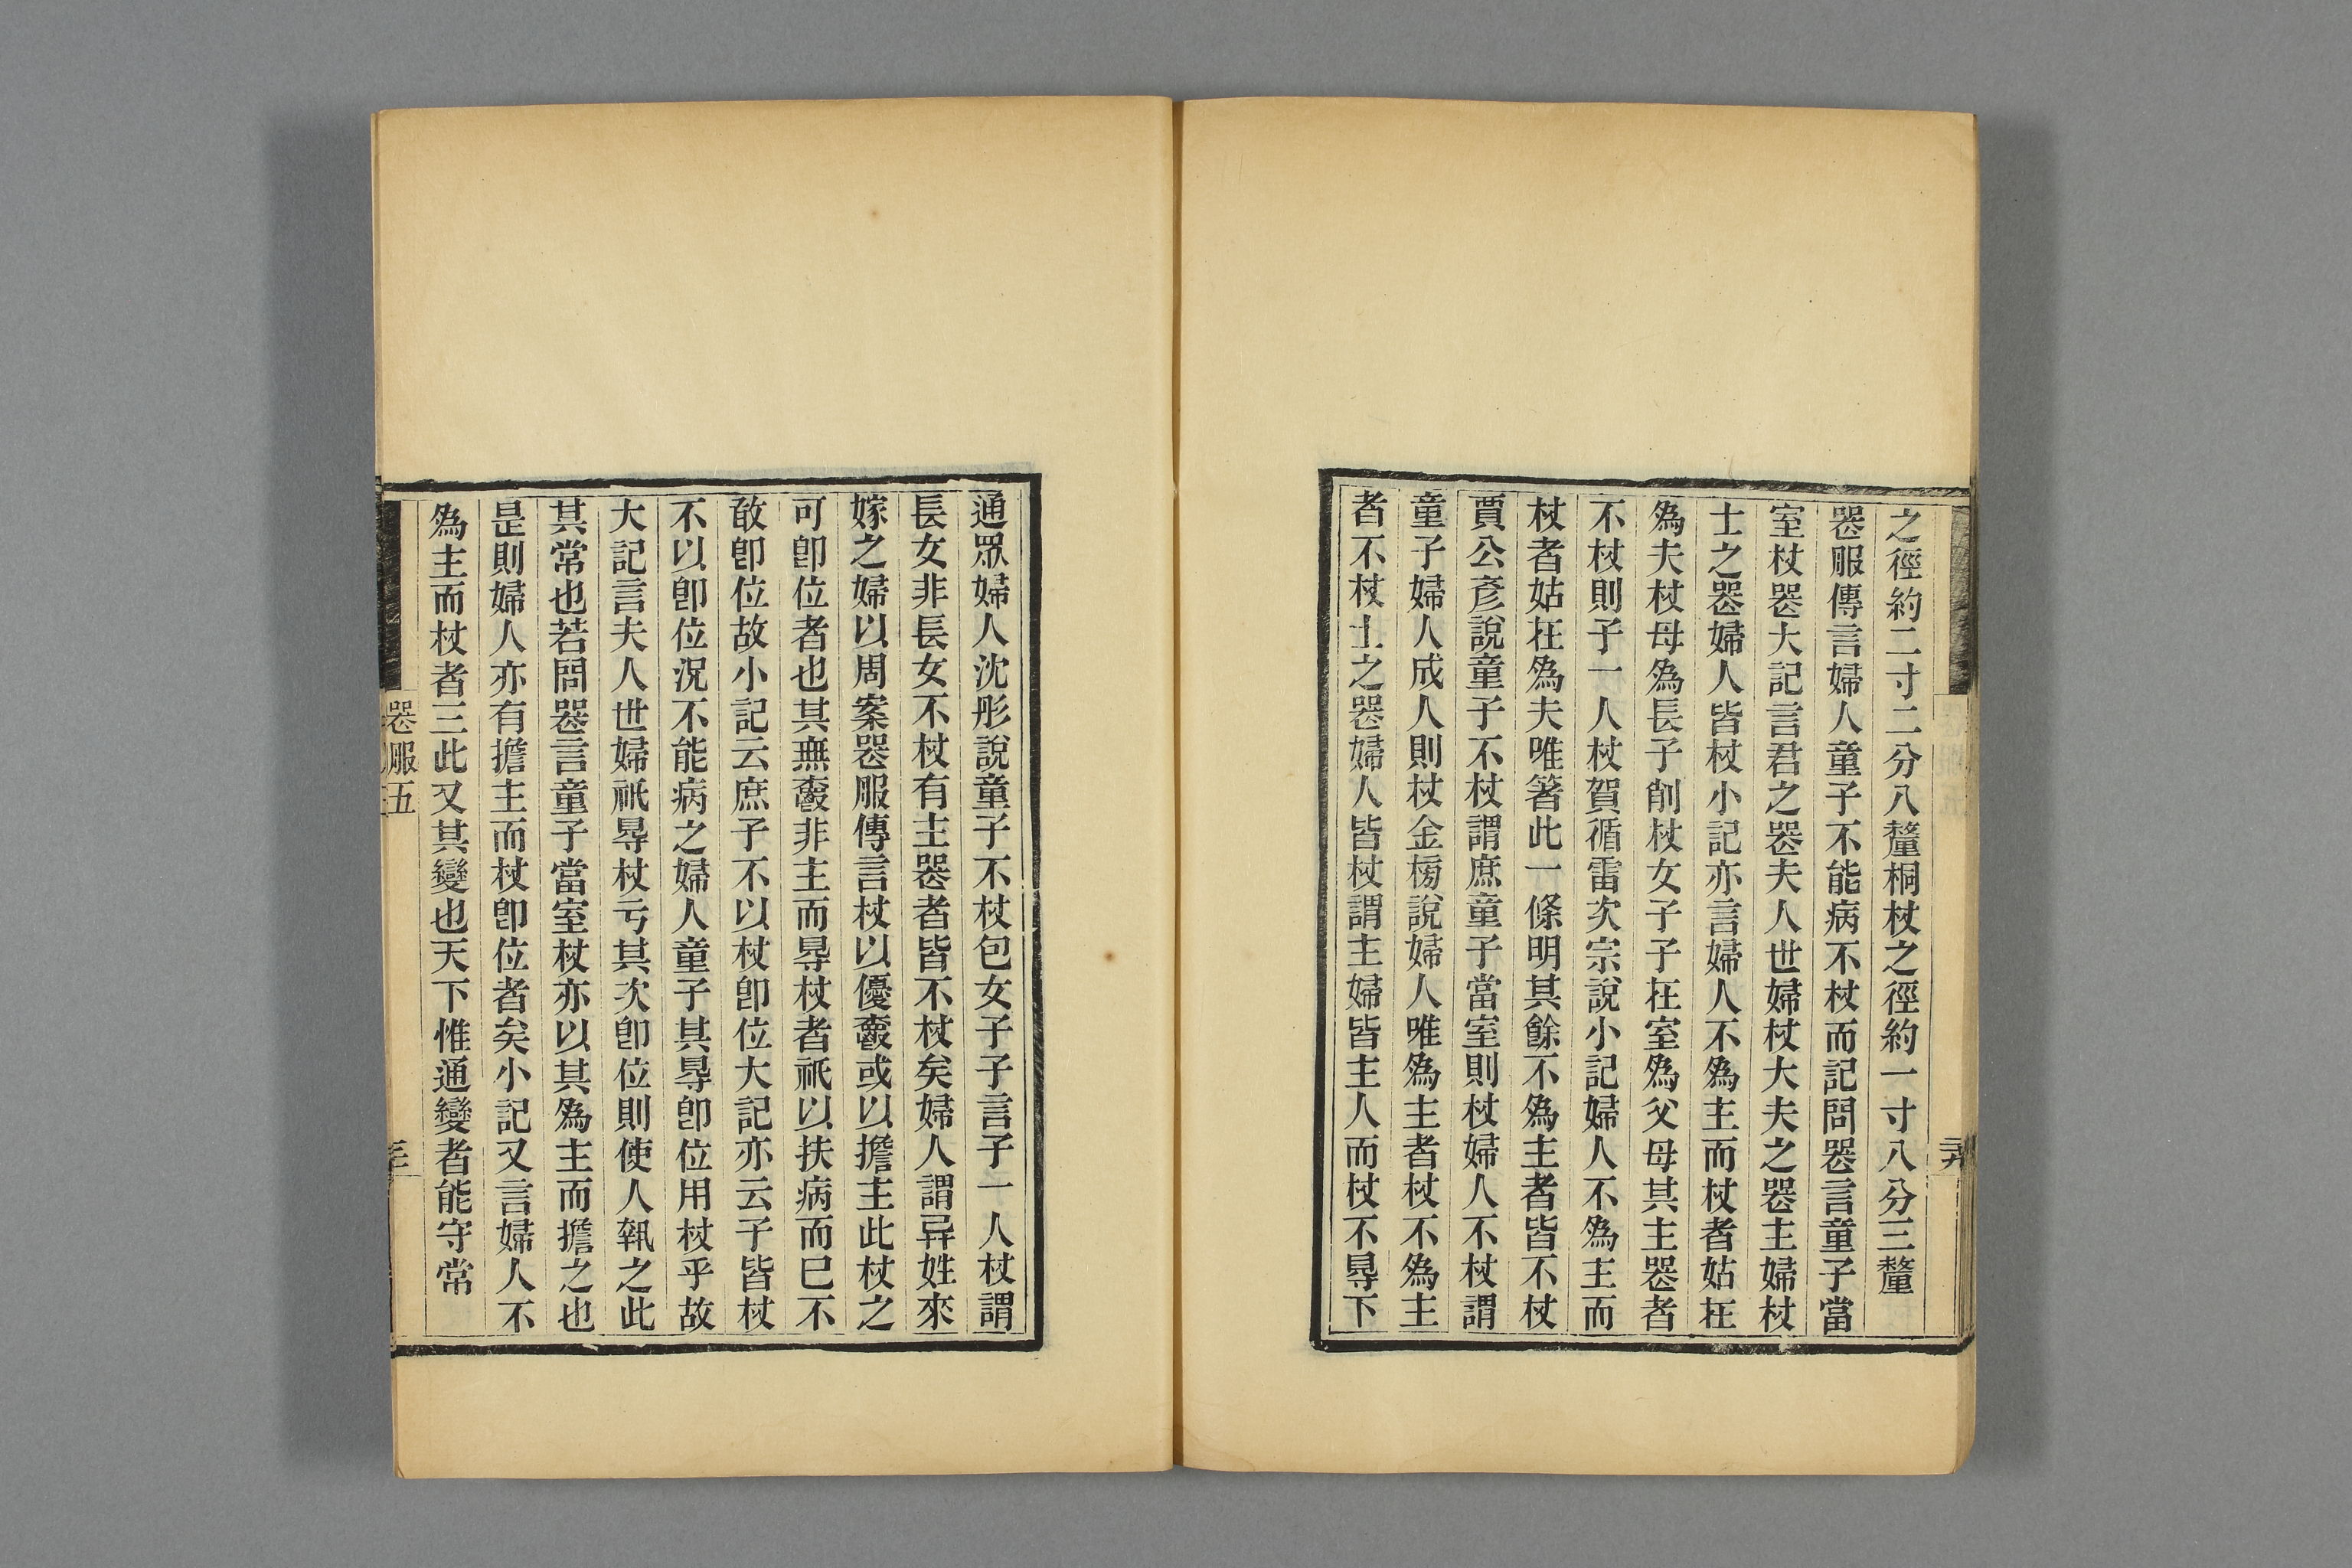 之徑約二寸二分八釐桐杖之徑約一寸八分三釐
喪服傳言婦人童子不能病不杖而記問喪言童子當
室杖喪大記言君之喪夫人世婦杖大夫之喪主婦杖
士之喪婦人皆杖小記亦言婦人不爲主而杖者姑在
爲夫杖母爲長子削杖女子子在室爲父母其主喪者
不杖則子一人杖賀循雷次宗說小記婦人不爲主而
杖者姑在爲夫唯箸此一條明其餘不爲主者皆不杖
賈公彥說童子不杖謂庶童子當室則杖婦人不杖謂
童子婦人成人則杖金榜說婦人唯爲主者杖不爲主
者不杖士之喪婦人皆杖謂主婦皆主人而杖不得下
通眾婦人沈彤說童子不杖包女子子言子一人杖謂
長女非長女不杖有主喪者皆不杖矣婦人謂异姓來
嫁之婦以周案喪服傳言杖以優爵或以擔主此杖之
可卽位者也其無爵非主而得杖者祇以扶病而已不
敢卽位故小記云庶子不以杖卽位大記亦云子皆杖
不以卽位況不能病之婦人童子其得卽位用杖乎故
大記言夫人世婦祇得杖亏其次卽位則使人執之此
其常也若問喪言童子當室杖亦以其爲主而擔之也
是則婦人亦有擔主而杖卽位者矣小記又言婦人不
爲主而杖者三此又其變也天下惟通變者能守常
喪服五